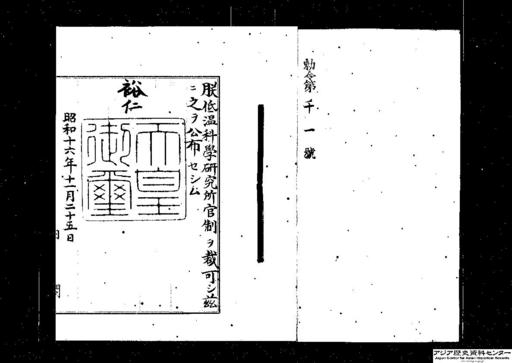 勅令第千一號
朕低温科學研究所官制ヲ裁可シ茲
ニ之ヲ公布セシム
裕仁
天皇御璽
昭和十六年十一月二十五日
アジア歴史資料センター
Japan Center for Asian Historical Records